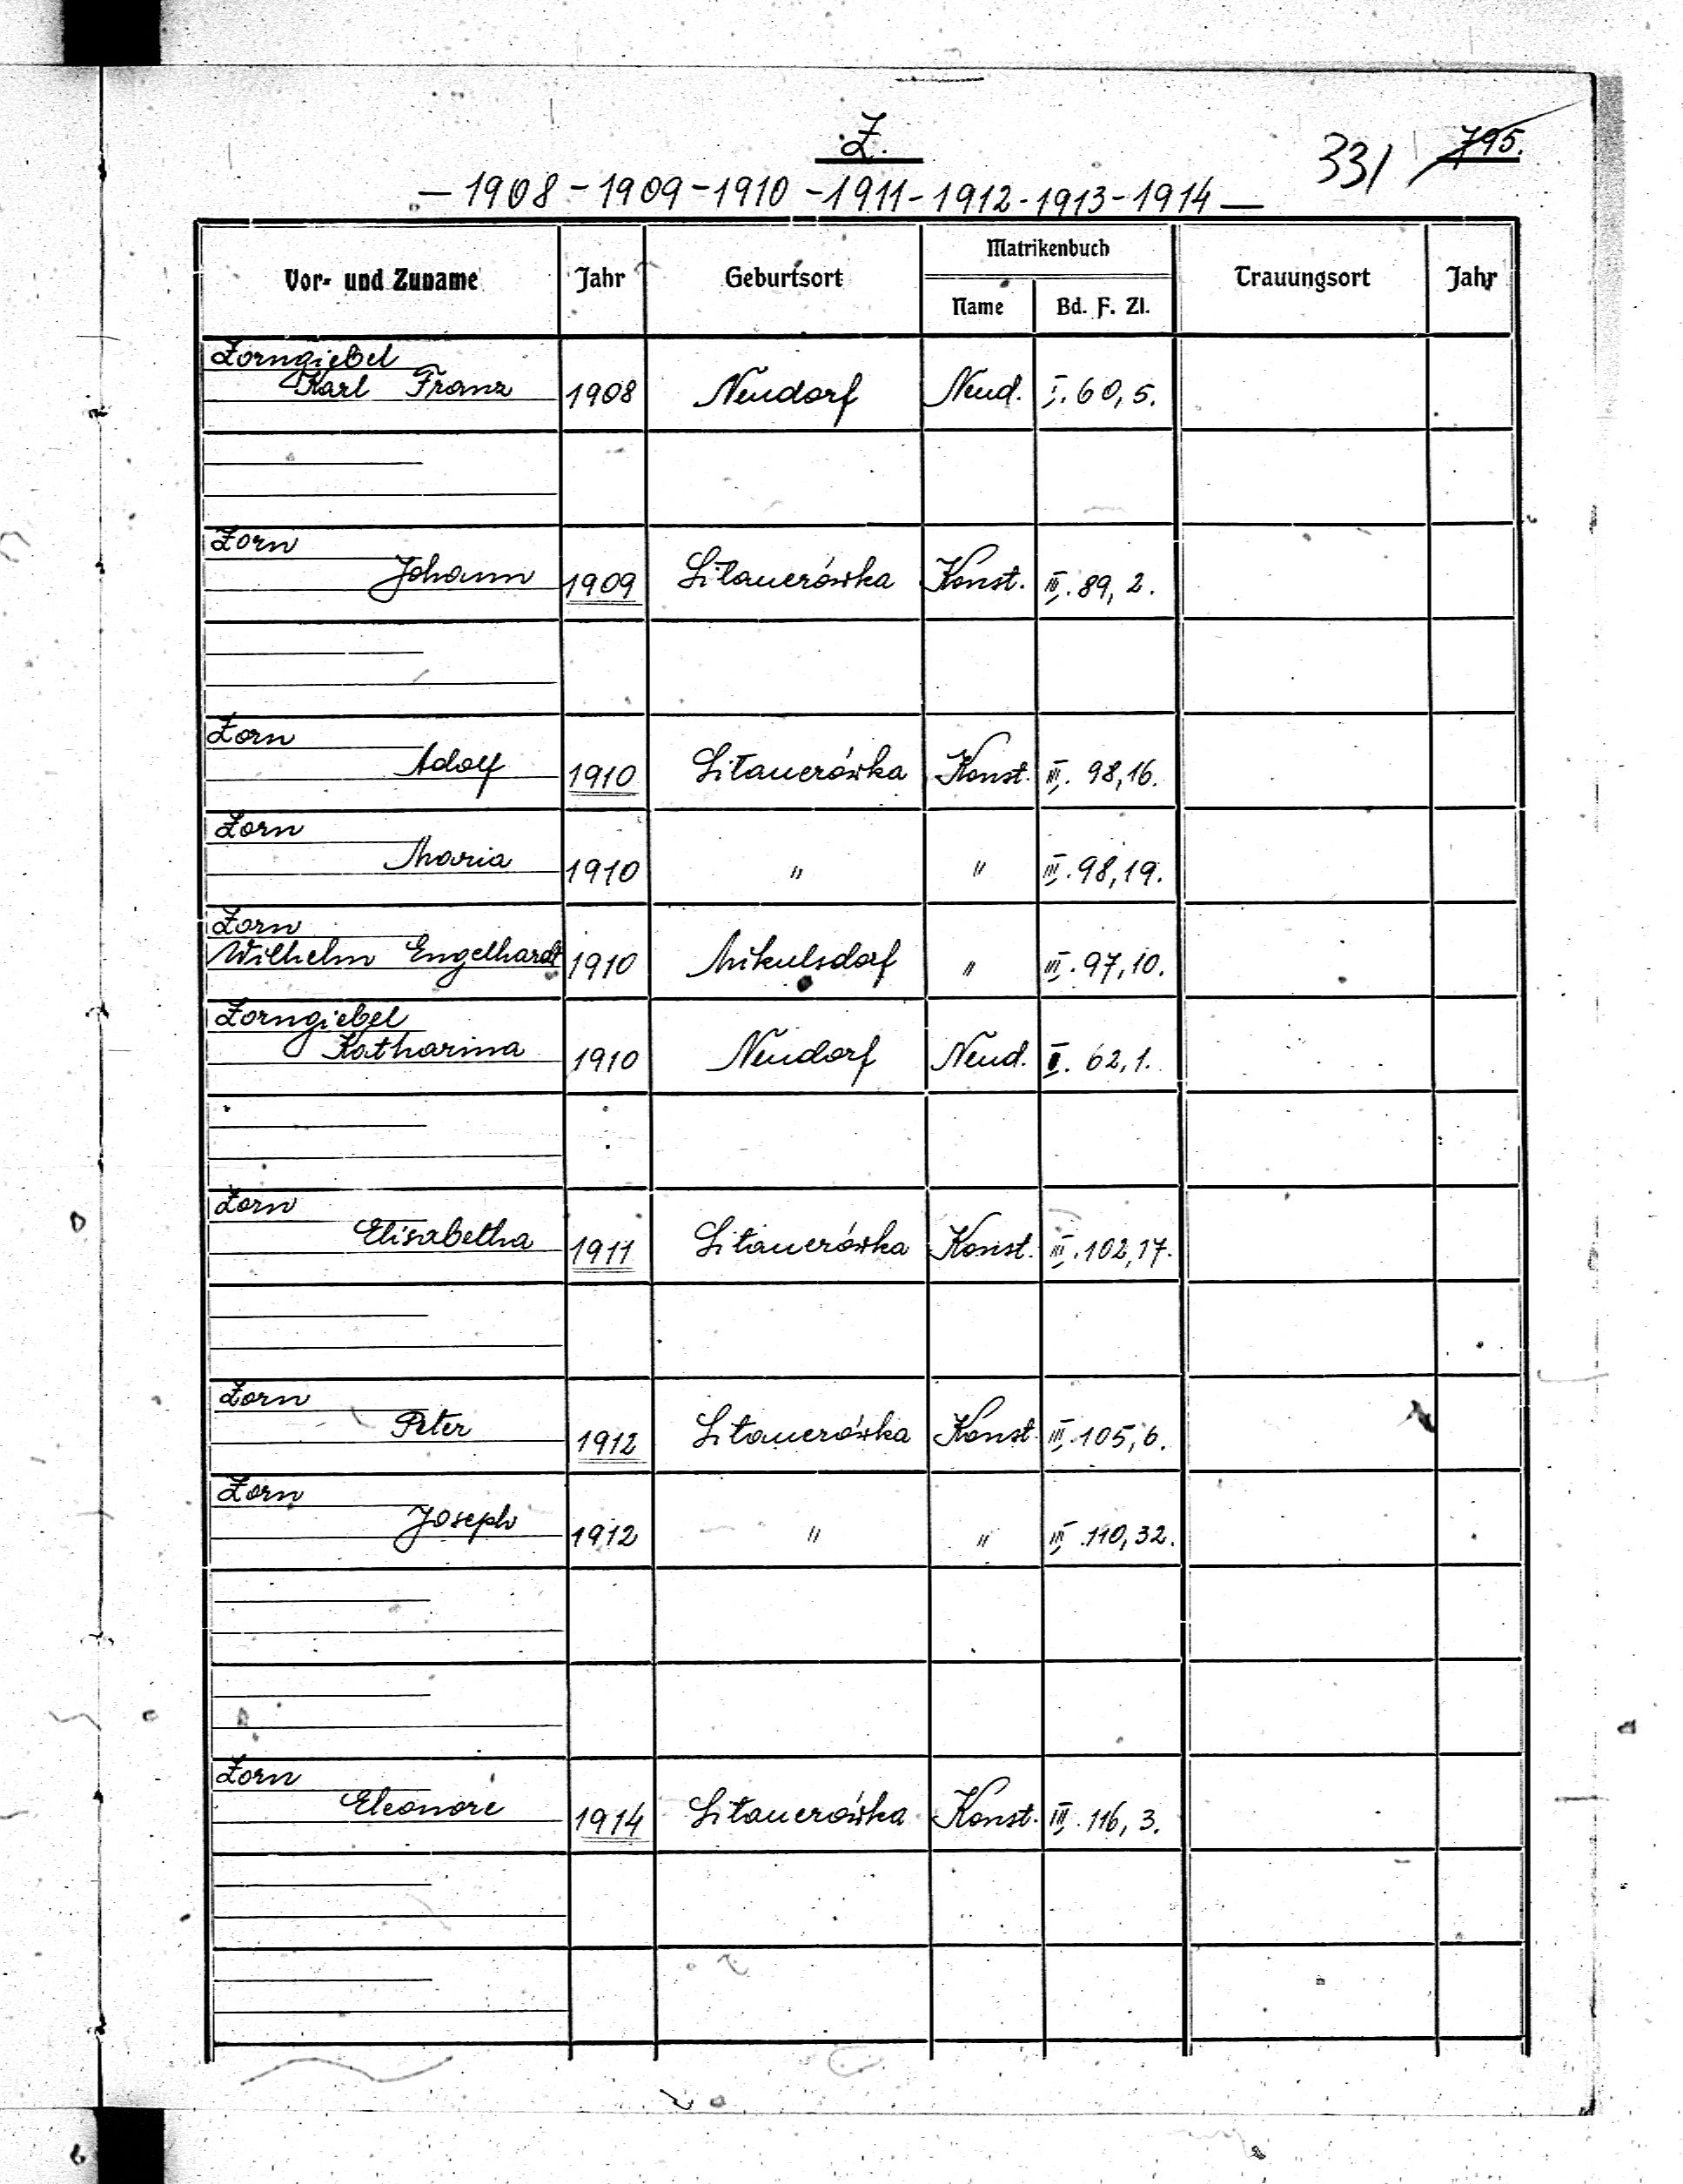 Z.
331 795.
— 1908 - 1909 - 1910 - 1911 - 1912 - 1913 - 1914 —
Vor- und Zuname Jahr Geburtsort Matrikenbuch Trauungsort Jahr
Name Bd. F. Zl.
Zorngiebel
Karl Franz 1908 Neudorf Neud. I. 60, 5.
Zorn
Johann 1909 Sitauerówka Konst. III. 89, 2.
Zorn
Adolf 1910 Sitauerówka Konst. III. 98, 16.
Zorn
Maria 1910 " " III. 98, 19.
Zorn
Wilhelm Engelhardt 1910 Mikulsdorf " III. 97, 10.
Zorngiebel
Katharina 1910 Neudorf Neud. I. 62, 1.
Zorn
Elisabetha 1911 Sitauerówka Konst. III. 102, 17.
Zorn
Peter 1912 Sitauerówka Konst. III. 105, 6.
Zorn
Joseph 1912 " " III. 110, 32.
Zorn
Eleonore 1914 Sitauerówka Konst. III. 116, 3.